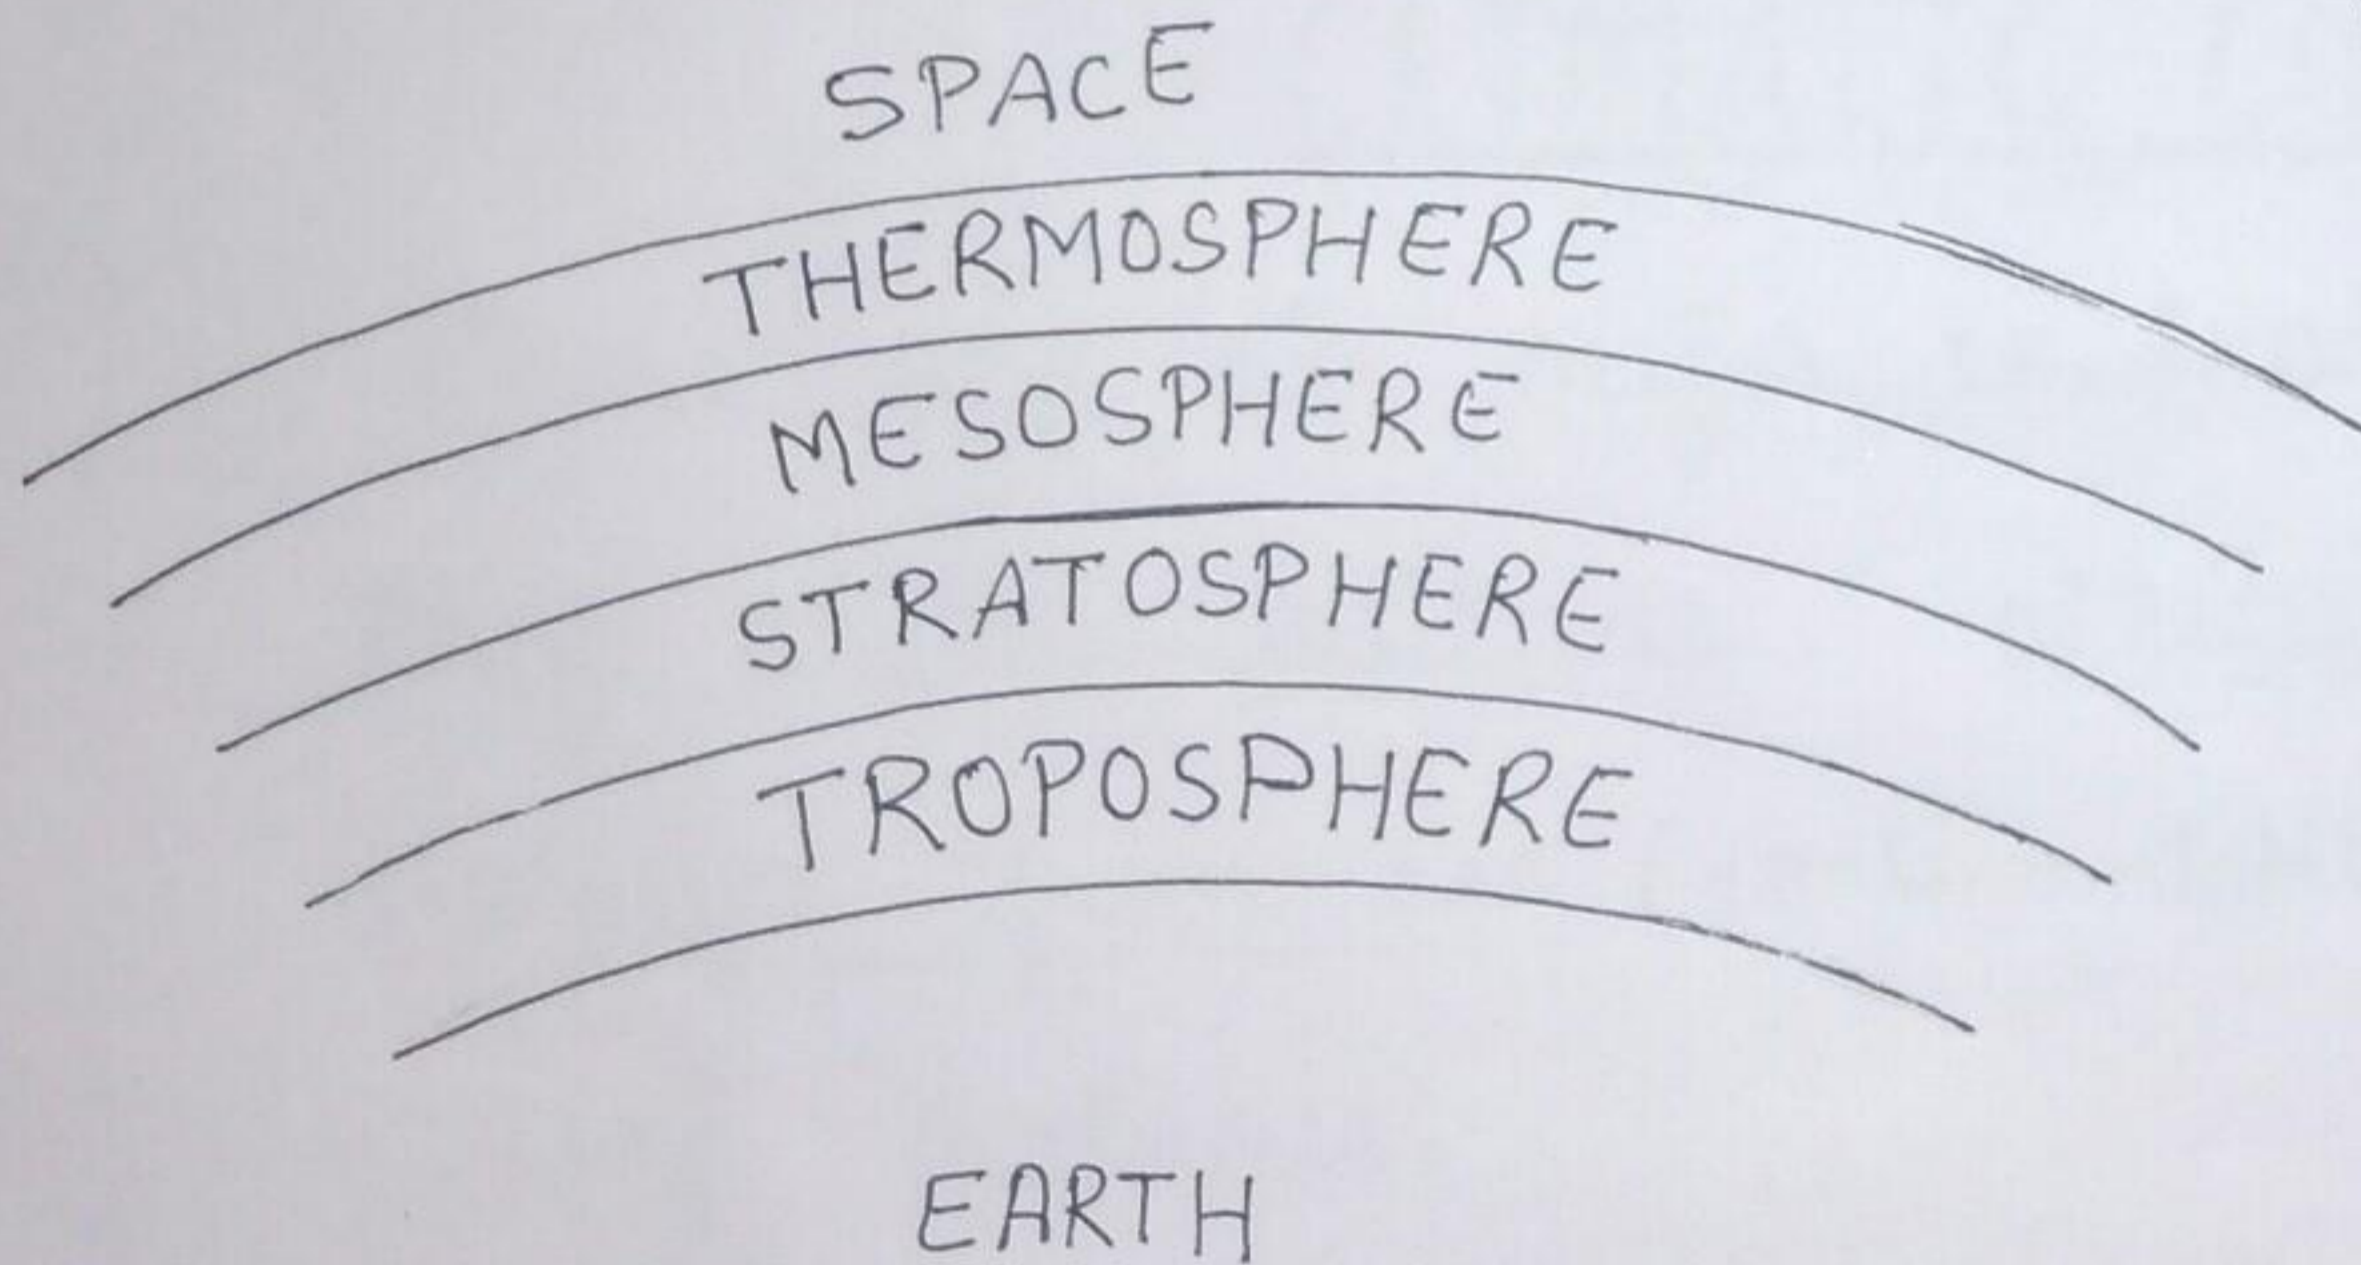 SPACE
THERMOSPHERE
MESOSPHERE
STRATOSPHERE
TROPOSPHERE
EARTH